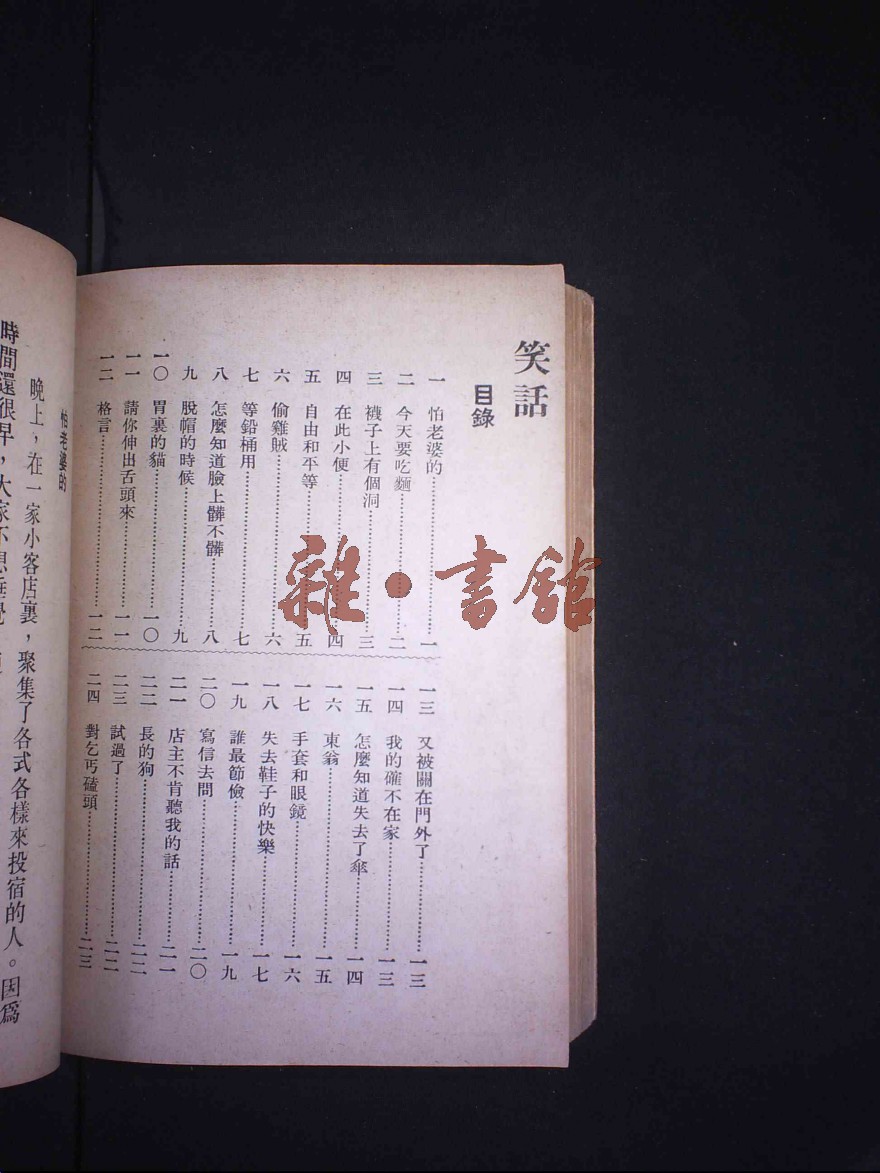 笑話
目錄
一 怕老婆的 一
二 今天要吃麵 二
三 襪子上有個洞 三
四 在此小便 四
五 自由和平等 五
六 偷雞賊 六
七 等鉛桶用 七
八 怎麼知道臉上髒不髒 八
九 脫帽的時候 九
一〇 胃裏的貓 一〇
一一 請你伸出舌頭來 一一
一二 格言 一二
一三 又被關在門外了 一三
一四 我的確不在家 一三
一五 怎麼知道失去了傘 一四
一六 東翁 一五
一七 手套和眼鏡 一六
一八 失去鞋子的快樂 一七
一九 誰最節儉 一九
二〇 寫信去問 二〇
二一 店主不肯聽我的話 二一
二二 長的狗 二二
二三 試過了 二二
二四 對乞丐磕頭 二三
怕老婆的
晚上，在一家小客店裏，聚集了各式各樣來投宿的人。因爲
時間還很早，大家不想睡覺
雜·書館